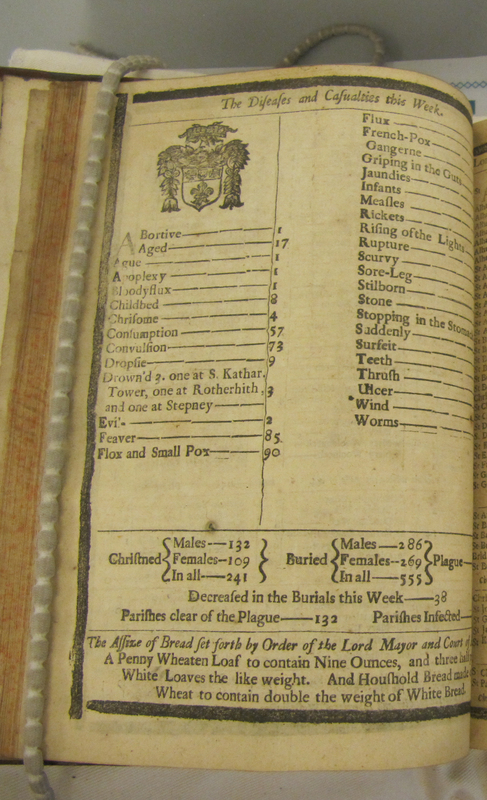 The Diſeaſes and Caſualties this Week.
ABortive 1
Aged 17
Ague 1
Apoplexy 1
Bloodyflux 1
Childbed 8
Chriſome 4
Conſumption 57
Convulſion 73
Dropſie 9
Drown'd 3. one at S. Kathar.
Tower, one at Rotherhith, 3
and one at Stepney
Evil 2
Feaver 85
Flox and Small Pox 90
Flux
French-Pox
Gangerne
Griping in the Guts
Jaundies
Infants
Meaſles
Rickets
Riſing of the Lights
Rupture
Scurvy
Sore-Leg
Stilborn
Stone
Stopping in the Stomach
Suddenly
Surfeit
Teeth
Thruſh
Ulcer
Wind
Worms
Males 132 Males 286
Chriſtned Females 109 Buried Females 269 Plague
In all 241 In all 555
Decreaſed in the Burials this Week 38
Pariſhes clear of the Plague 132 Pariſhes Infected
The Aſſize of Bread ſet forth by Order of the Lord Mayor and Court of
A Penny Wheaten Loaf to contain Nine Ounces, and three
White Loaves the like weight. And Houſhold Bread made
Wheat to contain double the weight of White Bread.